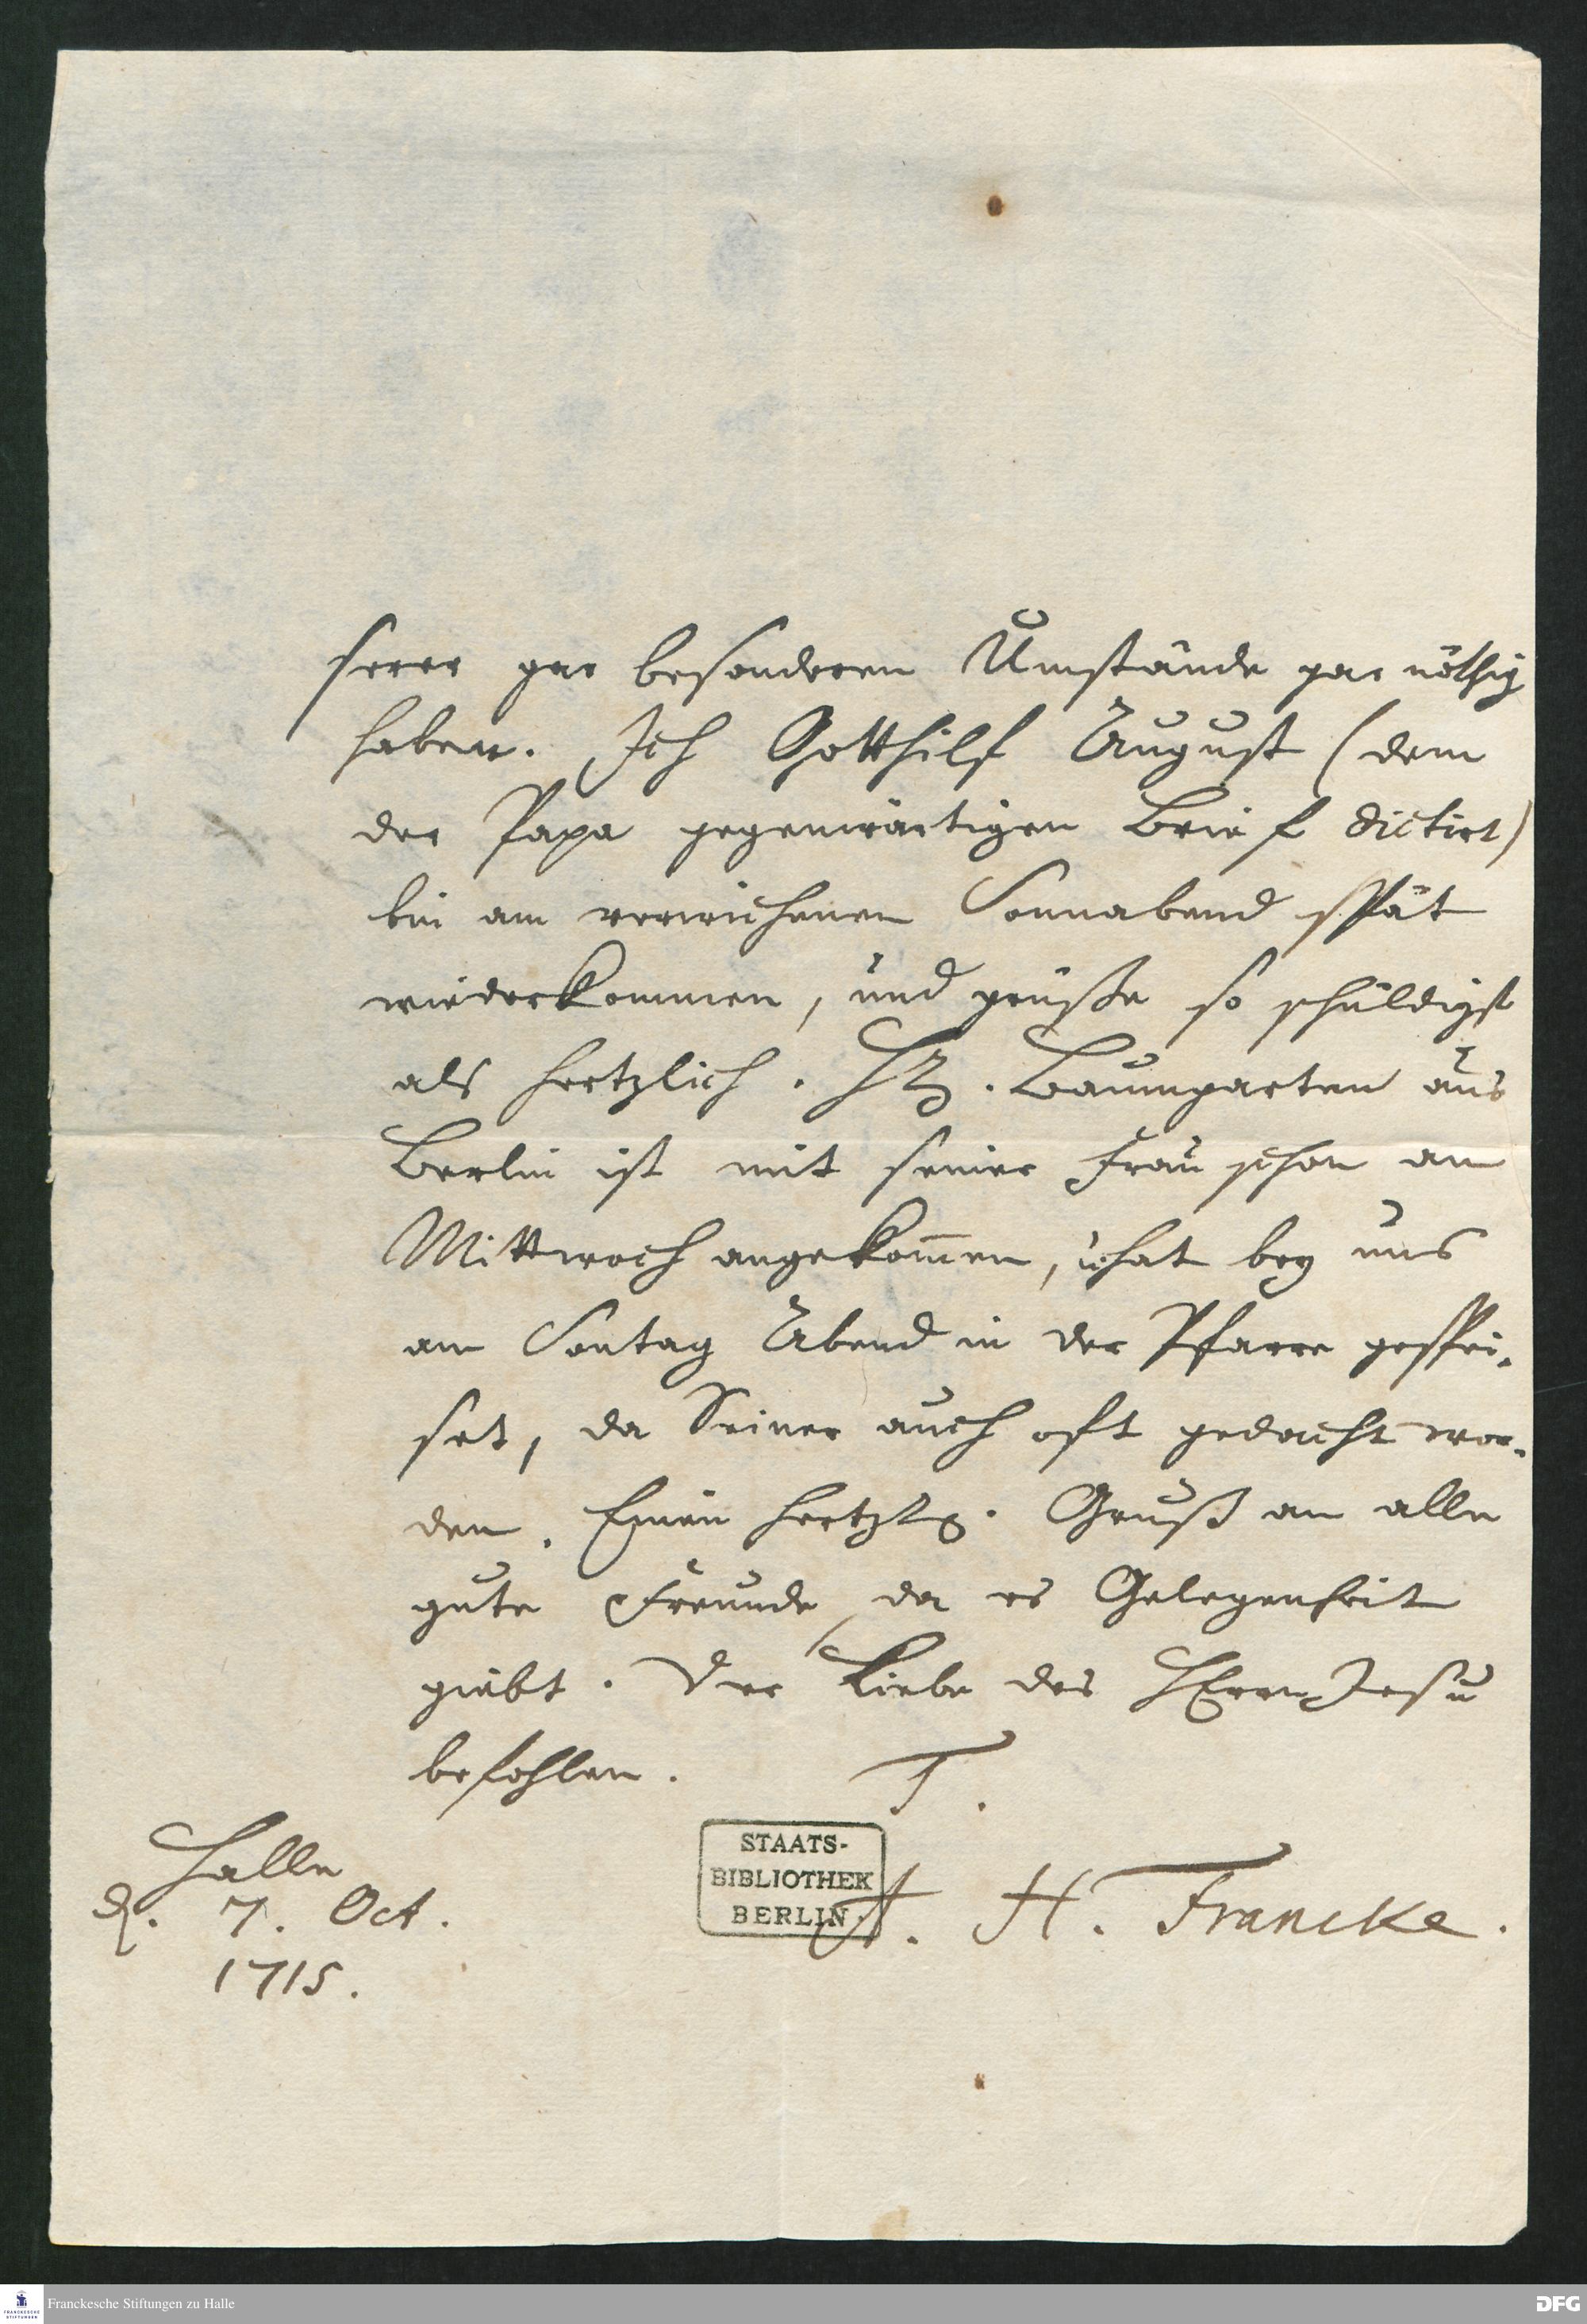 serer gar besonderen Umstände gar nöthig
haben. Ich Gotthilf August (dem
der Papa gegenwärtigen Brief dictirt)
bin am verwichenen Sonnabend spät
wiederkommen, und grüße so schuldigst
als hertzlich. H. Baumgarten aus
Berlin ist mit seiner Frau schon am
Mittwoch angekom̄en, u hat bey uns
am Sontag Abend in der Pfarre gespei-
set, da Seiner auch oft gedacht wor-
den. hertzl. Gruß an alle
gute Freunde, da es Gelegenheit
giebt. Der Liebe des HErrn Jesu
befohlen. T.
Halle
d. 7. Oct.
1715.
STAATS-
BIBLIOTHEK
BERLIN.
A. H. Francke.
FRANCKESCHE
STIFTUNGEN
Franckesche Stiftungen zu Halle
DFG